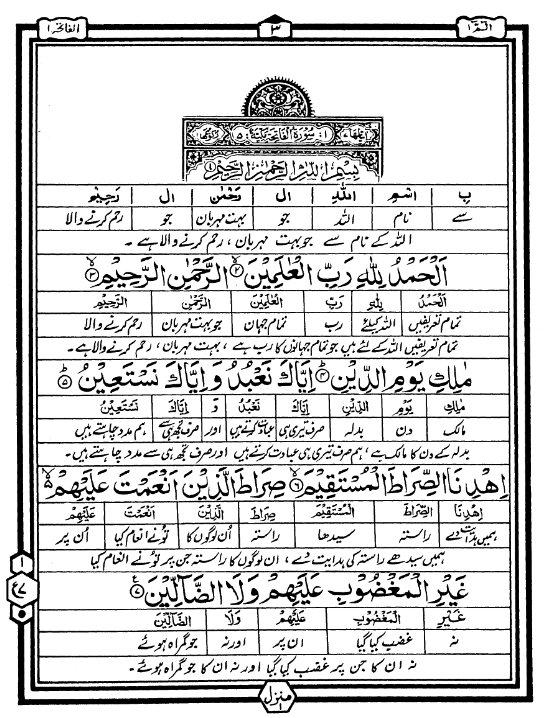 الفاتحہ ۱ ۳ الٓمٓ ۱
بِسْمِ اللّٰهِ الرَّحْمٰنِ الرَّحِيْمِ
بِ اِسْم اللّٰهِ ال رَحْمٰن ال رَحِيْم
سے نام اللہ جو بہت مہربان جو رحم کرنے والا
اللہ کے نام سے جو بہت مہربان، رحم کرنے والا ہے۔
اَلْحَمْدُ لِلّٰهِ رَبِّ الْعٰلَمِيْنَ ۲ الرَّحْمٰنِ الرَّحِيْمِ ۳
اَلْحَمْدُ لِلّٰهِ رَبِّ الْعٰلَمِيْنَ الرَّحْمٰنِ الرَّحِيْمِ
تمام تعریفیں اللہ کیلئے رب تمام جہان جو بہت مہربان رحم کرنے والا
تمام تعریفیں اللہ کے لئے ہیں جو تمام جہانوں کا رب ہے، بہت مہربان، رحم کرنے والا ہے۔
مٰلِكِ يَوْمِ الدِّيْنِ ۴ اِيَّاكَ نَعْبُدُ وَ اِيَّاكَ نَسْتَعِيْنُ ۵
مٰلِكِ يَوْمِ الدِّيْنِ اِيَّاكَ نَعْبُدُ وَ اِيَّاكَ نَسْتَعِيْنُ
مالک دن بدلہ صرف تیری ہی عبادت کرتے ہیں اور صرف تجھ ہی سے ہم مدد چاہتے ہیں
بدلہ کے دن کا مالک ہے، ہم صرف تیری ہی عبادت کرتے ہیں اور صرف تجھ ہی سے مدد چاہتے ہیں۔
اِهْدِنَا الصِّرَاطَ الْمُسْتَقِيْمَ ۶ صِرَاطَ الَّذِيْنَ اَنْعَمْتَ عَلَيْهِمْ
اِهْدِنَا الصِّرَاطَ الْمُسْتَقِيْمَ صِرَاطَ الَّذِيْنَ اَنْعَمْتَ عَلَيْهِمْ
ہمیں ہدایت دے راستہ سیدھا راستہ اُن لوگوں کا تونے انعام کیا اُن پر
ہمیں سیدھے راستہ کی ہدایت دے، ان لوگوں کا راستہ جن پر تونے انعام کیا
غَيْرِ الْمَغْضُوْبِ عَلَيْهِمْ وَلَا الضَّآلِّيْنَ ۷
غَيْرِ الْمَغْضُوْبِ عَلَيْهِمْ وَلَا الضَّآلِّيْنَ
نہ غضب کیا گیا ان پر اور نہ جو گمراہ ہوئے
نہ ان کا جن پر غضب کیا گیا اور نہ ان کا جو گمراہ ہوئے۔
منزل